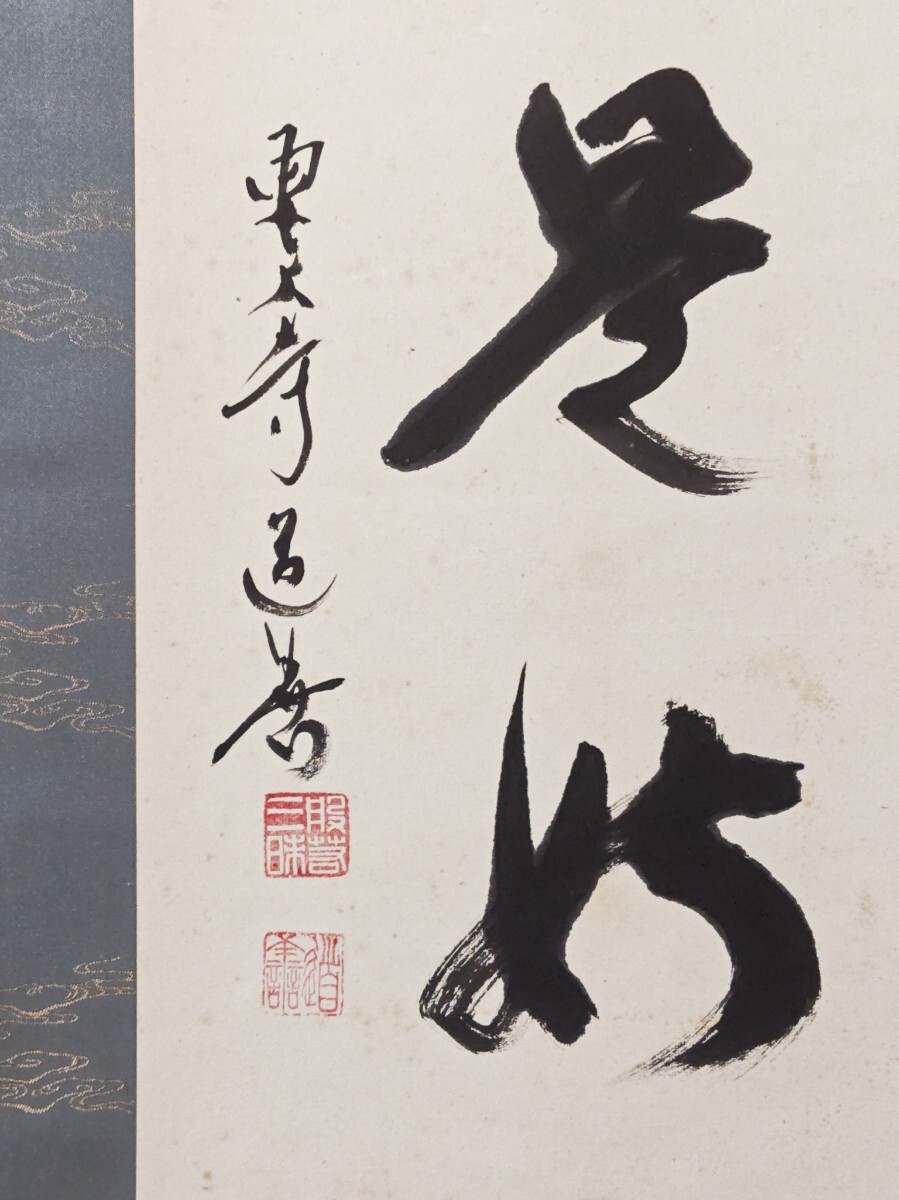 是好
東大寺道善
般若三昧
道善